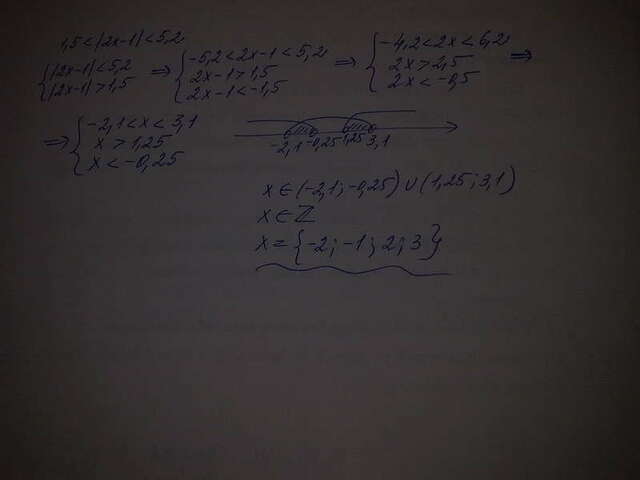 1,5<|2x-1|<5,2
{|2x-1|<5,2
|2x-1|>1,5
⇒ {-5,2<2x-1<5,2
2x-1>1,5
2x-1<-1,5
⇒ {-4,2<2x<6,2
2x>2,5
2x<-0,5
⇒
⇒ {-2,1<x<3,1
x>1,25
x<-0,25
-2,1 -0,25 1,25 3,1
x∈(-2,1;-0,25)∪(1,25;3,1)
x∈ℤ
x={-2;-1;2;3}